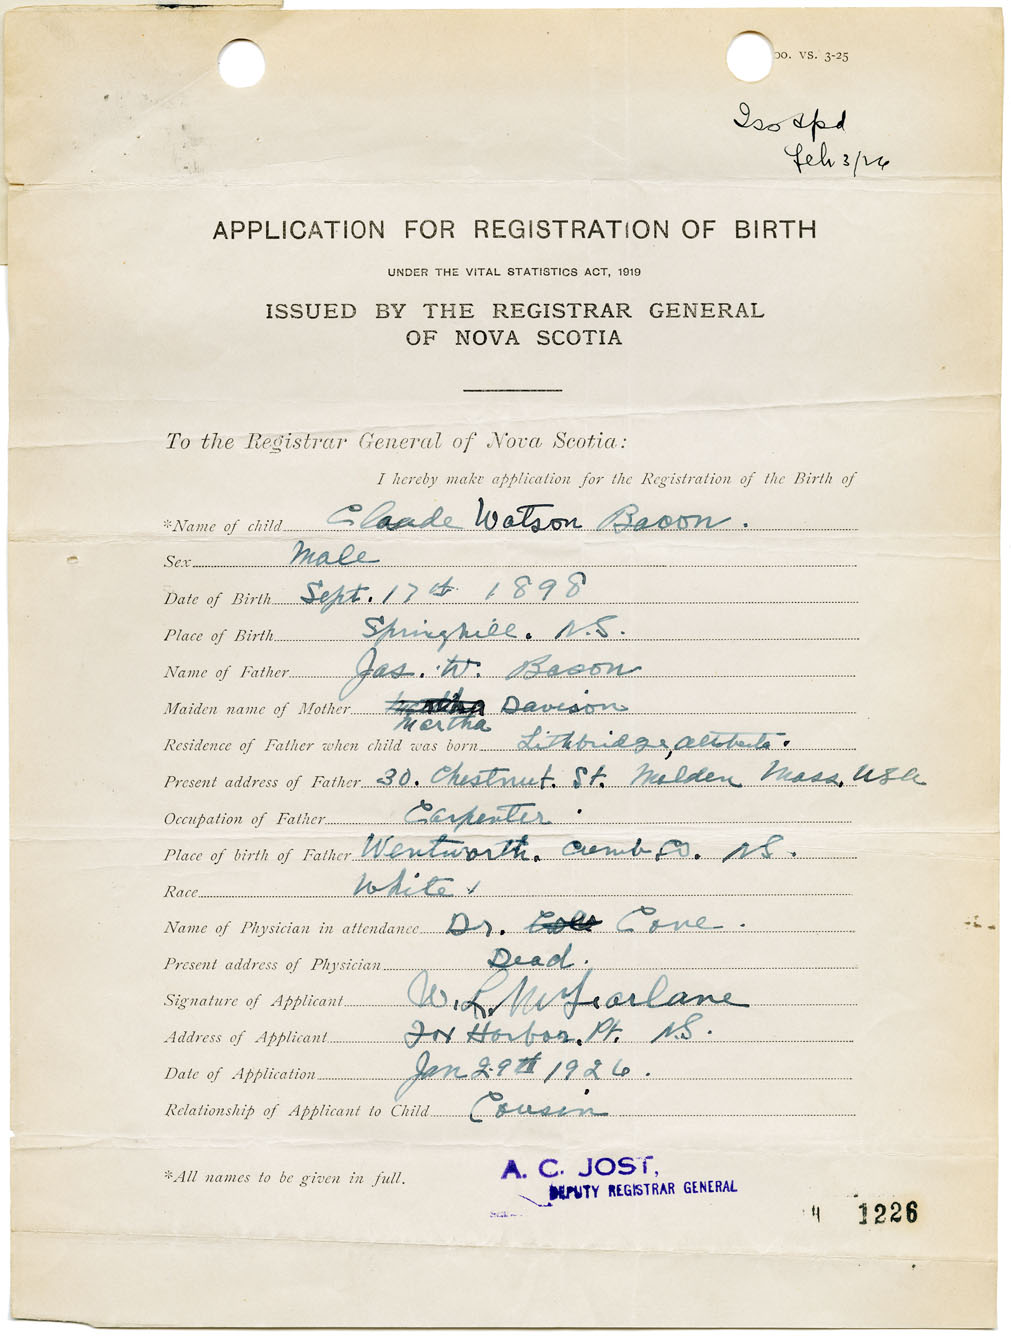 00. VS. 3-25
Feb 3/26
APPLICATION FOR REGISTRATION OF BIRTH
UNDER THE VITAL STATISTICS ACT, 1919
ISSUED BY THE REGISTRAR GENERAL
OF NOVA SCOTIA
To the Registrar General of Nova Scotia:
I hereby make application for the Registration of the Birth of
*Name of child Claude Watson Bacon.
Sex Male
Date of Birth Sept. 17th 1898
Place of Birth Springhill. N.S.
Name of Father Jas. W. Bacon
Maiden name of Mother Davison
Martha
Residence of Father when child was born Lithbridge,
Present address of Father 30. Chestnut. St. Malden Mass. USA
Occupation of Father Carpenter.
Place of birth of Father Wentworth. Cumb. Co. NS.
Race White
Name of Physician in attendance Dr. Cove.
Present address of Physician Dead.
Signature of Applicant W. L. McFarlane
Address of Applicant Fox Harbor. Pt. N.S.
Date of Application Jan 29th 1926.
Relationship of Applicant to Child Cousin
*All names to be given in full.
A. C. JOST,
DEPUTY REGISTRAR GENERAL
1226